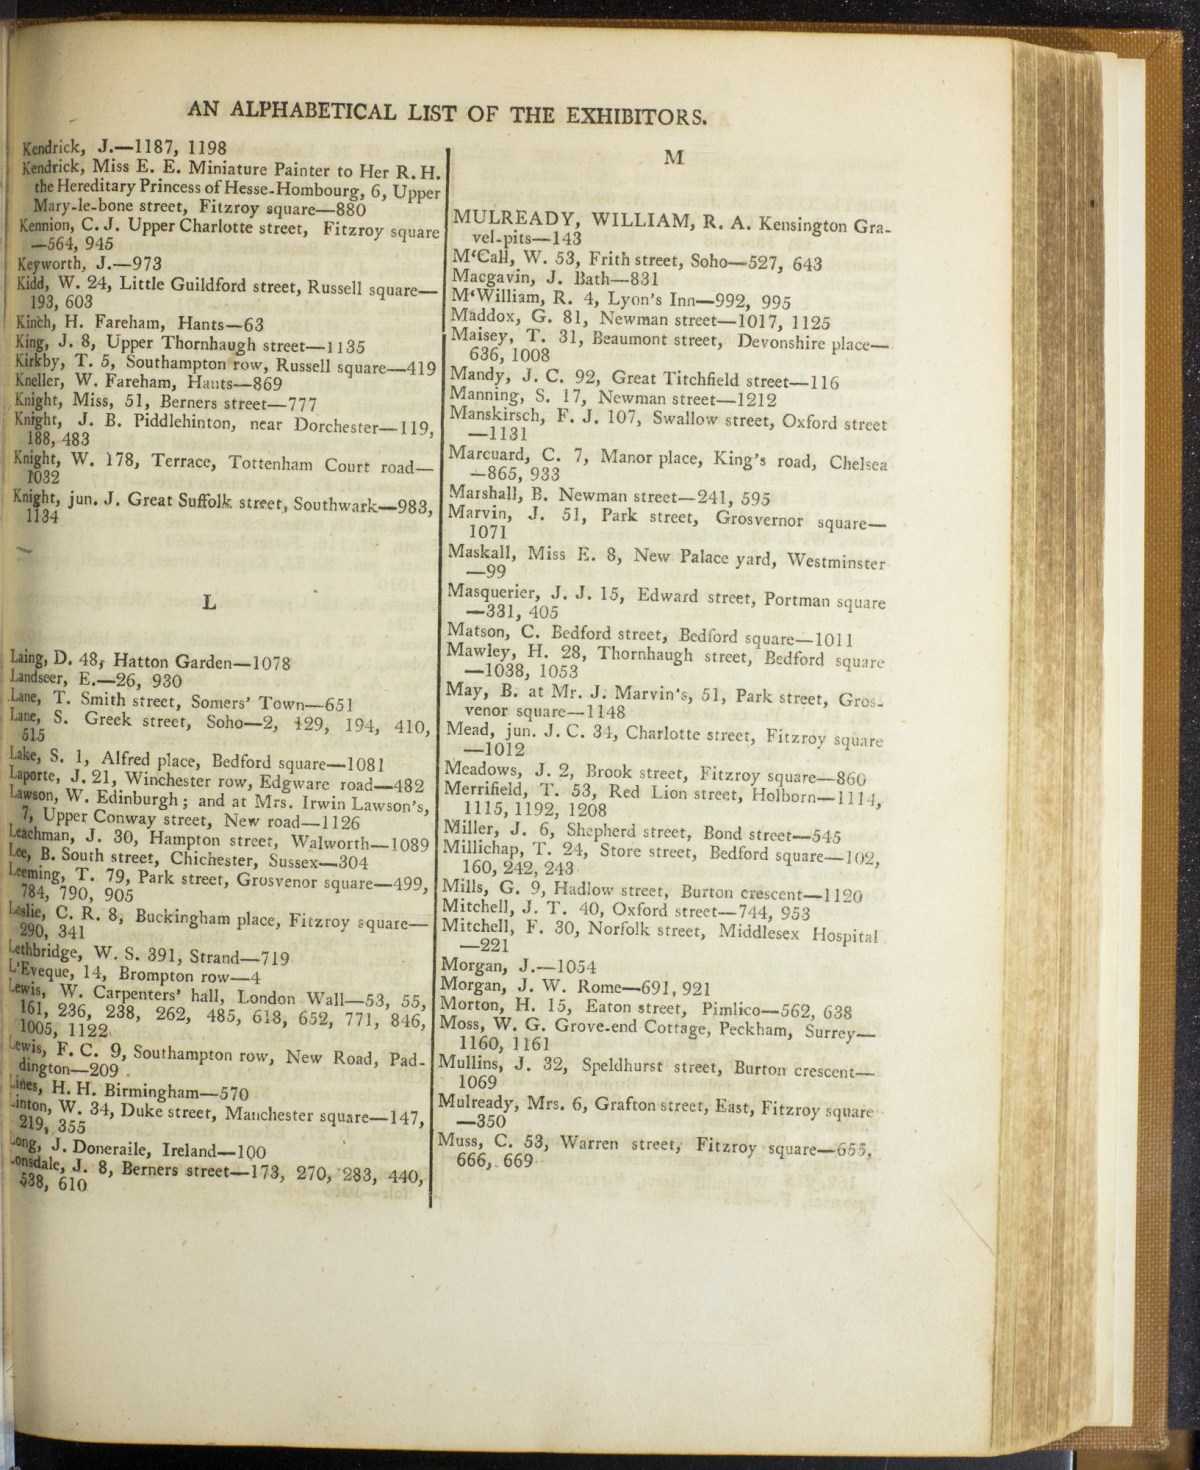 AN ALPHABETICAL LIST OF THE EXHIBITORS.
Kendrick, J.—1187, 1198
Kendrick, Miss E. E. Miniature Painter to Her R. H.
the Hereditary Princess of Hesse-Hombourg, 6, Upper
Mary-le-bone street, Fitzroy square—880
Kennion, C. J. Upper Charlotte street, Fitzroy square
—564, 945
Keyworth, J.—973
Kidd, W. 24, Little Guildford street, Russell square—
193, 603
Kinch, H. Fareham, Hants—63
King, J. 8, Upper Thornhaugh street—1135
Kirkby, T. 5, Southampton row, Russell square—419
Kneller, W. Fareham, Hants—869
Knight, Miss, 51, Berners street—777
Knight, J. B. Piddlehinton, near Dorchester—119,
188, 483
Knight, W. 178, Terrace, Tottenham Court road—
1032
Knight, jun. J. Great Suffolk street, Southwark—983,
1134
L
Laing, D. 48, Hatton Garden—1078
Landseer, E.—26, 930
Lane, T. Smith street, Somers' Town—651
Lane, S. Greek street, Soho—2, 129, 194, 410,
515
Lake, S. 1, Alfred place, Bedford square—1081
Laporte, J. 21, Winchester row, Edgware road—482
Lawson, W. Edinburgh; and at Mrs. Irwin Lawson's,
7, Upper Conway street, New road—1126
Leachman, J. 30, Hampton street, Walworth—1089
Lee, B. South street, Chichester, Sussex—304
Leeming, T. 79, Park street, Grosvenor square—499,
784, 790, 905
Leslie, C. R. 8, Buckingham place, Fitzroy square—
290, 341
Lethbridge, W. S. 391, Strand—719
L'Eveque, 14, Brompton row—4
Lewis, W. Carpenters' hall, London Wall—53, 55,
161, 236, 238, 262, 485, 618, 652, 771, 846,
1005, 1122
Lewis, F. C. 9, Southampton row, New Road, Pad-
dington—209
Lines, H. H. Birmingham—570
Linton, W. 34, Duke street, Manchester square—147,
219, 355
Long, J. Doneraile, Ireland—100
Lonsdale, J. 8, Berners street—173, 270, 283, 440,
538, 610
M
MULREADY, WILLIAM, R. A. Kensington Gra-
vel-pits—143
M'Call, W. 53, Frith street, Soho—527, 643
Macgavin, J. Bath—831
M'William, R. 4, Lyon's Inn—992, 995
Maddox, G. 81, Newman street—1017, 1125
Maisey, T. 31, Beaumont street, Devonshire place—
636, 1008
Mandy, J. C. 92, Great Titchfield street—116
Manning, S. 17, Newman street—1212
Manskirsch, F. J. 107, Swallow street, Oxford street
—1131
Marcuard, C. 7, Manor place, King's road, Chelsea
—865, 933
Marshall, B. Newman street—241, 595
Marvin, J. 51, Park street, Grosvernor square—
1071
Maskall, Miss E. 8, New Palace yard, Westminster
—99
Masquerier, J. J. 15, Edward street, Portman square
—331, 405
Matson, C. Bedford street, Bedford square—1011
Mawley, H. 28, Thornhaugh street, Bedford square
—1038, 1053
May, B. at Mr. J. Marvin's, 51, Park street, Gros-
venor square—1148
Mead, jun. J. C. 34, Charlotte street, Fitzroy square
—1012
Meadows, J. 2, Brook street, Fitzroy square—860
Merrifield, T. 53, Red Lion street, Holborn—1114,
1115, 1192, 1208
Miller, J. 6, Shepherd street, Bond street—545
Millichap, T. 24, Store street, Bedford square—102,
160, 242, 243
Mills, G. 9, Hadlow street, Burton crescent—1120
Mitchell, J. T. 40, Oxford street—744, 953
Mitchell, F. 30, Norfolk street, Middlesex Hospital
—221
Morgan, J.—1054
Morgan, J. W. Rome—691, 921
Morton, H. 15, Eaton street, Pimlico—562, 638
Moss, W. G. Grove-end Cottage, Peckham, Surrey—
1160, 1161
Mullins, J. 32, Speldhurst street, Burton crescent—
1069
Mulready, Mrs. 6, Grafton street, East, Fitzroy square
—350
Muss, C. 53, Warren street, Fitzroy square—655,
666, 669